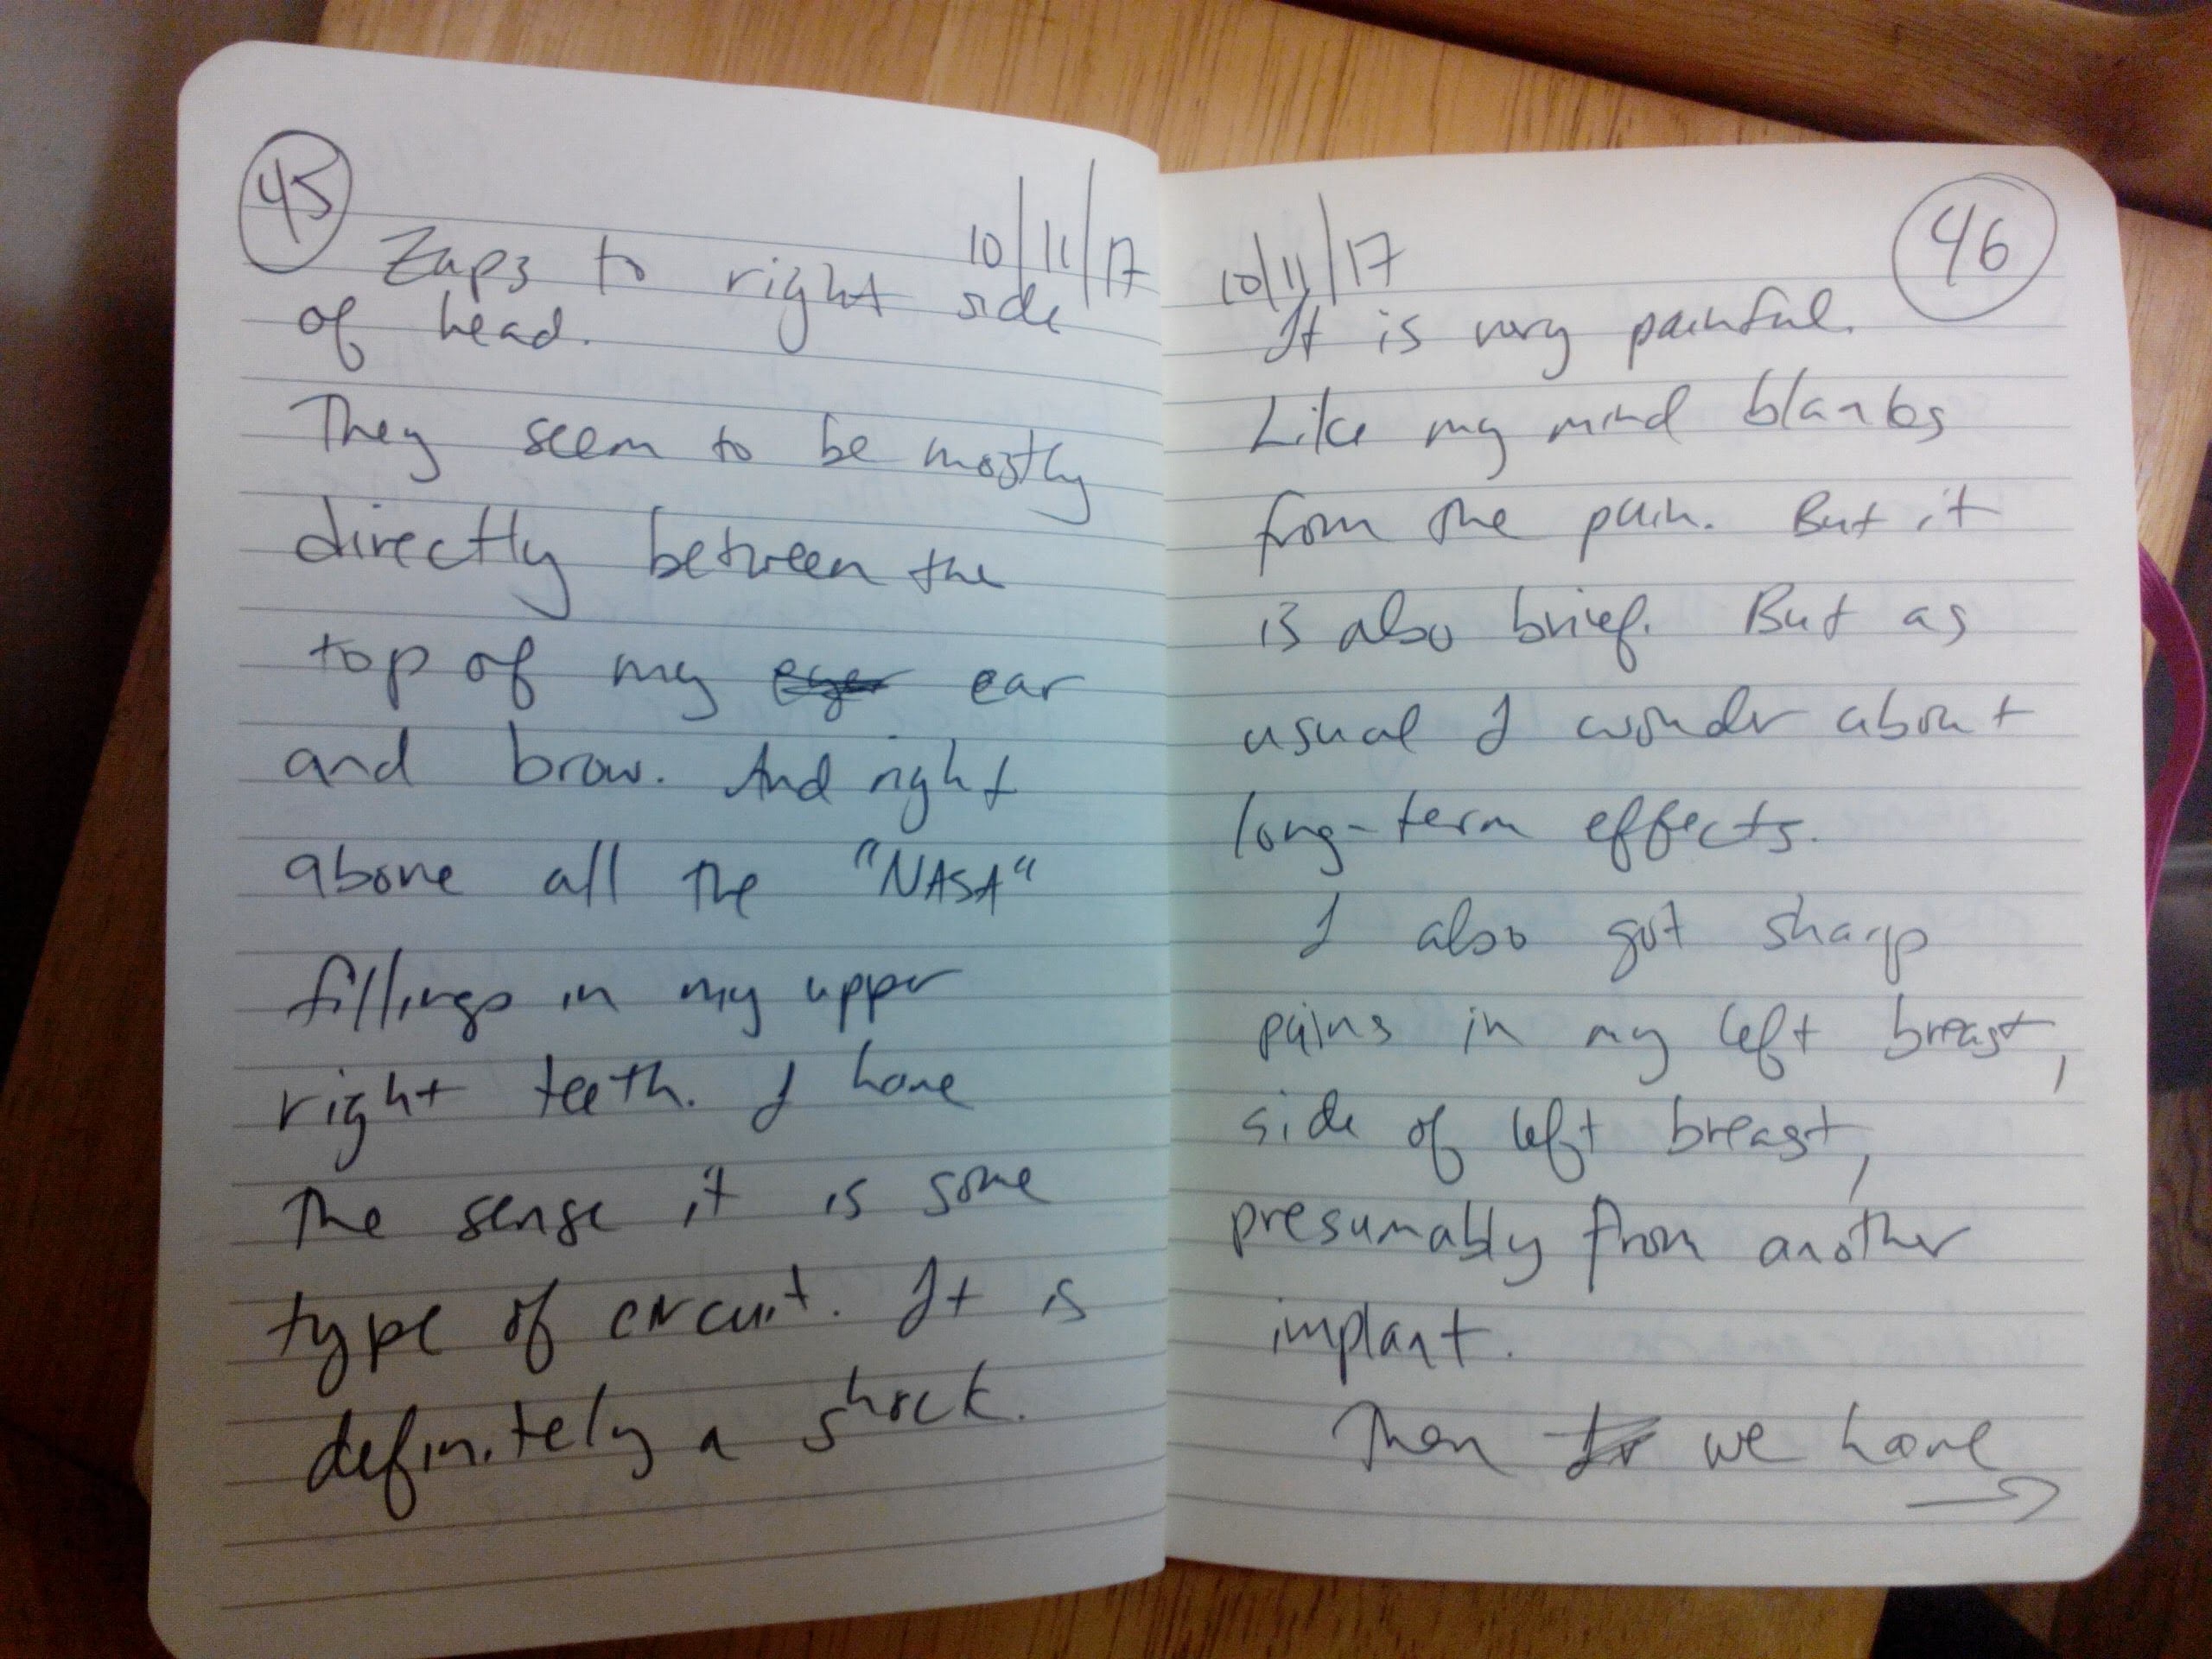 45
10/11/17
Zaps to right side
of head.
They seem to be mostly
directly between the
top of my eye ear
and brow. And right
above all the "NASA"
fillings in my upper
right teeth. I have
the sense it is some
type of circuit. It is
definitely a shock.
46
10/11/17
It is very painful.
Like my mind blanks
from the pain. But it
is also brief. But as
usual I wonder about
long-term effects.
I also got sharp
pains in my left breast,
side of left breast,
presumably from another
implant.
Then we have
→